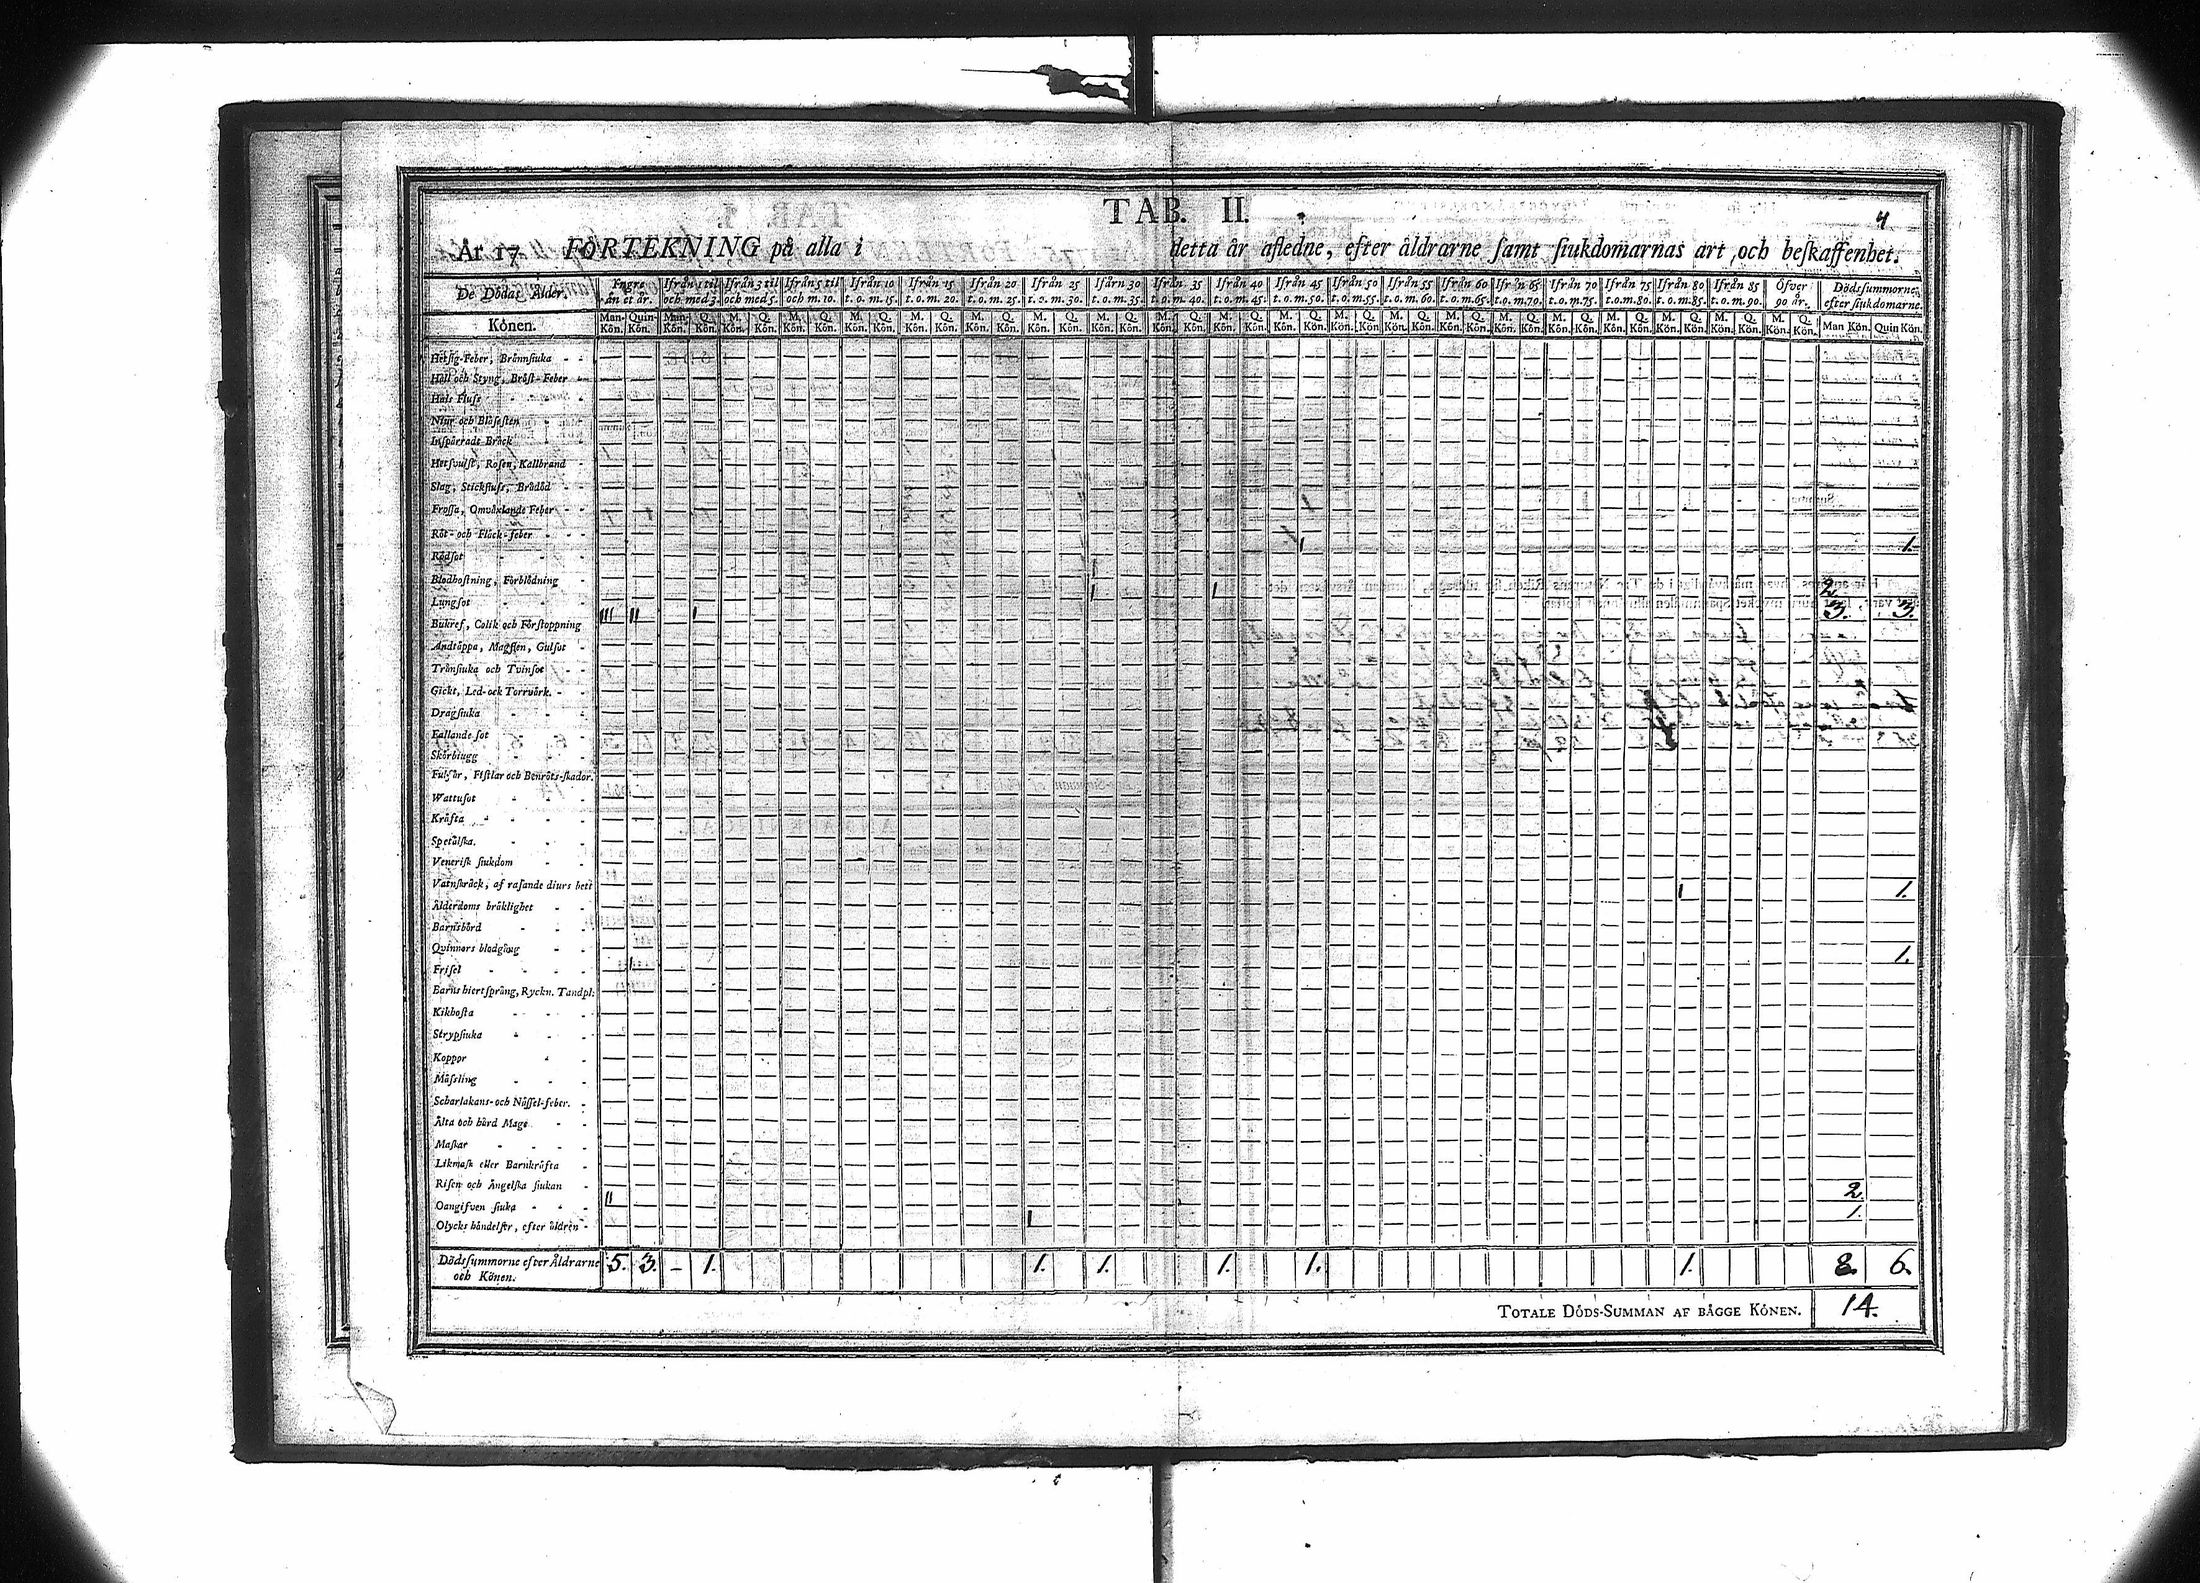 4
TAB. II.
År 17 FÖRTEKNING på alla i detta år afledne, efter åldrarne ſamt ſiukdomarnas art och beſkaffenhet.
De Dödas Ålder. Yngre än et år. Ifrån 1 til och med 3. Ifrån 3 til och med 5. Ifrån 5 til och m. 10. Ifrån 10 t. o. m. 15. Ifrån 15 t. o. m. 20. Ifrån 20 t. o. m. 25. Ifrån 25 t. o. m. 30. Ifårn 30 t. o. m. 35. Ifrån 35 t. o. m. 40. Ifrån 40 t. o. m. 45. Ifrån 45 t. o. m. 50. Ifrån 50 t. o. m. 55. Ifrån 55 t. o. m. 60. Ifrån 60 t. o. m. 65. Ifrån 65 t. o. m. 70. Ifrån 70 t. o. m. 75. Ifrån 75 t. o. m. 80. Ifrån 80 t. o. m. 85. Ifrån 85 t. o. m. 90. Öfver 90 år. Dödsſummorne efter ſiukdomarne.
Könen. Man-Kön. Quin-Kön. Man-Kön. Q. Kön. M. Kön. Q. Kön. M. Kön. Q. Kön. M. Kön. Q. Kön. M. Kön. Q. Kön. M. Kön. Q. Kön. M. Kön. Q. Kön. M. Kön. Q. Kön. M. Kön. Q. Kön. M. Kön. Q. Kön. M. Kön. Q. Kön. M. Kön. Q. Kön. M. Kön. Q. Kön. M. Kön. Q. Kön. M. Kön. Q. Kön. M. Kön. Q. Kön. M. Kön. Q. Kön. M. Kön. Q. Kön. M. Kön. Q. Kön. M. Kön. Q. Kön. Man Kön. Quin Kön.
Hetſig-Feber, Brännſiuka
Håll och Styng, Bröſt-Feber
Hals Fluſs
Niur och Blåſeſten
Inſpärrade Bråck
Hetſvulſt, Roſen, Kallbrand
Slag, Stickfluſs, Brådöd
Froſſa, Omväxlande Feber
Röt- och Fläck-feber
Rödſot 1 1.
Blodhoſtning, Förblödning
Lungſot 1 1 2.
Bukref, Colik och Förſtoppning III II I 3. 3.
Andtäppa, Magſten, Gulſot
Trånſiuka och Tvinſot
Gickt, Led- och Torrvärk.
Dragſiuka
Fallande ſot
Skörbiugg
Fulſår, Fiſtlar och Benröts-ſkador.
Wattuſot
Kräfta
Spetälſka.
Veneriſk ſiukdom
Vatnſkräck, af raſande diurs bett
Ålderdoms bräklighet 1 1.
Barnsbörd
Qvinnors blodgång
Friſel 1 1.
Barns hiertſprång, Ryckn. Tandpl:
Kikhoſta
Strypſiuka
Koppor
Mäſsling
Scharlakans- och Näſſel-feber.
Älta och hård Mage
Maſkar
Likmaſk eller Barnkräfta
Riſen och Ängelſka ſiukan
Oangifven ſiuka II 2.
Olycks händelſer, efter åldren 1 1.
Dödsſummorne efter Åldrarne och Könen. 5. 3. - 1. 1. 1. 1. 1. 1. 8. 6.
TOTALE DÖDS-SUMMAN AF BÄGGE KÖNEN. 14.